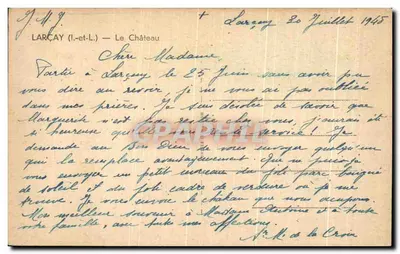 J.M.J. + Larçay 20 Juillet 1945
LARÇAY (I.-et-L.) — Le Château
Chère Madame,
Partie à Larçay le 25 Juin sans avoir pu
vous dire au revoir, je ne vous ai pas oubliée
dans mes prières. Je suis désolée de savoir que
Marguerite n'est pas restée chez vous, j'aurais été
si heureuse service! Je
demande au Bon Dieu de vous envoyer quelqu'un
qui la remplace avantageusement. Que ne puis-je
vous envoyer un petit morceau du joli parc
de soleil et du joli cadre de verdure où je me
trouve. Je vous envoie le château que nous occupons.
Mon meilleur souvenir à Madame et à toute
votre famille, avec toute mes affections.
N. M. de la Croix